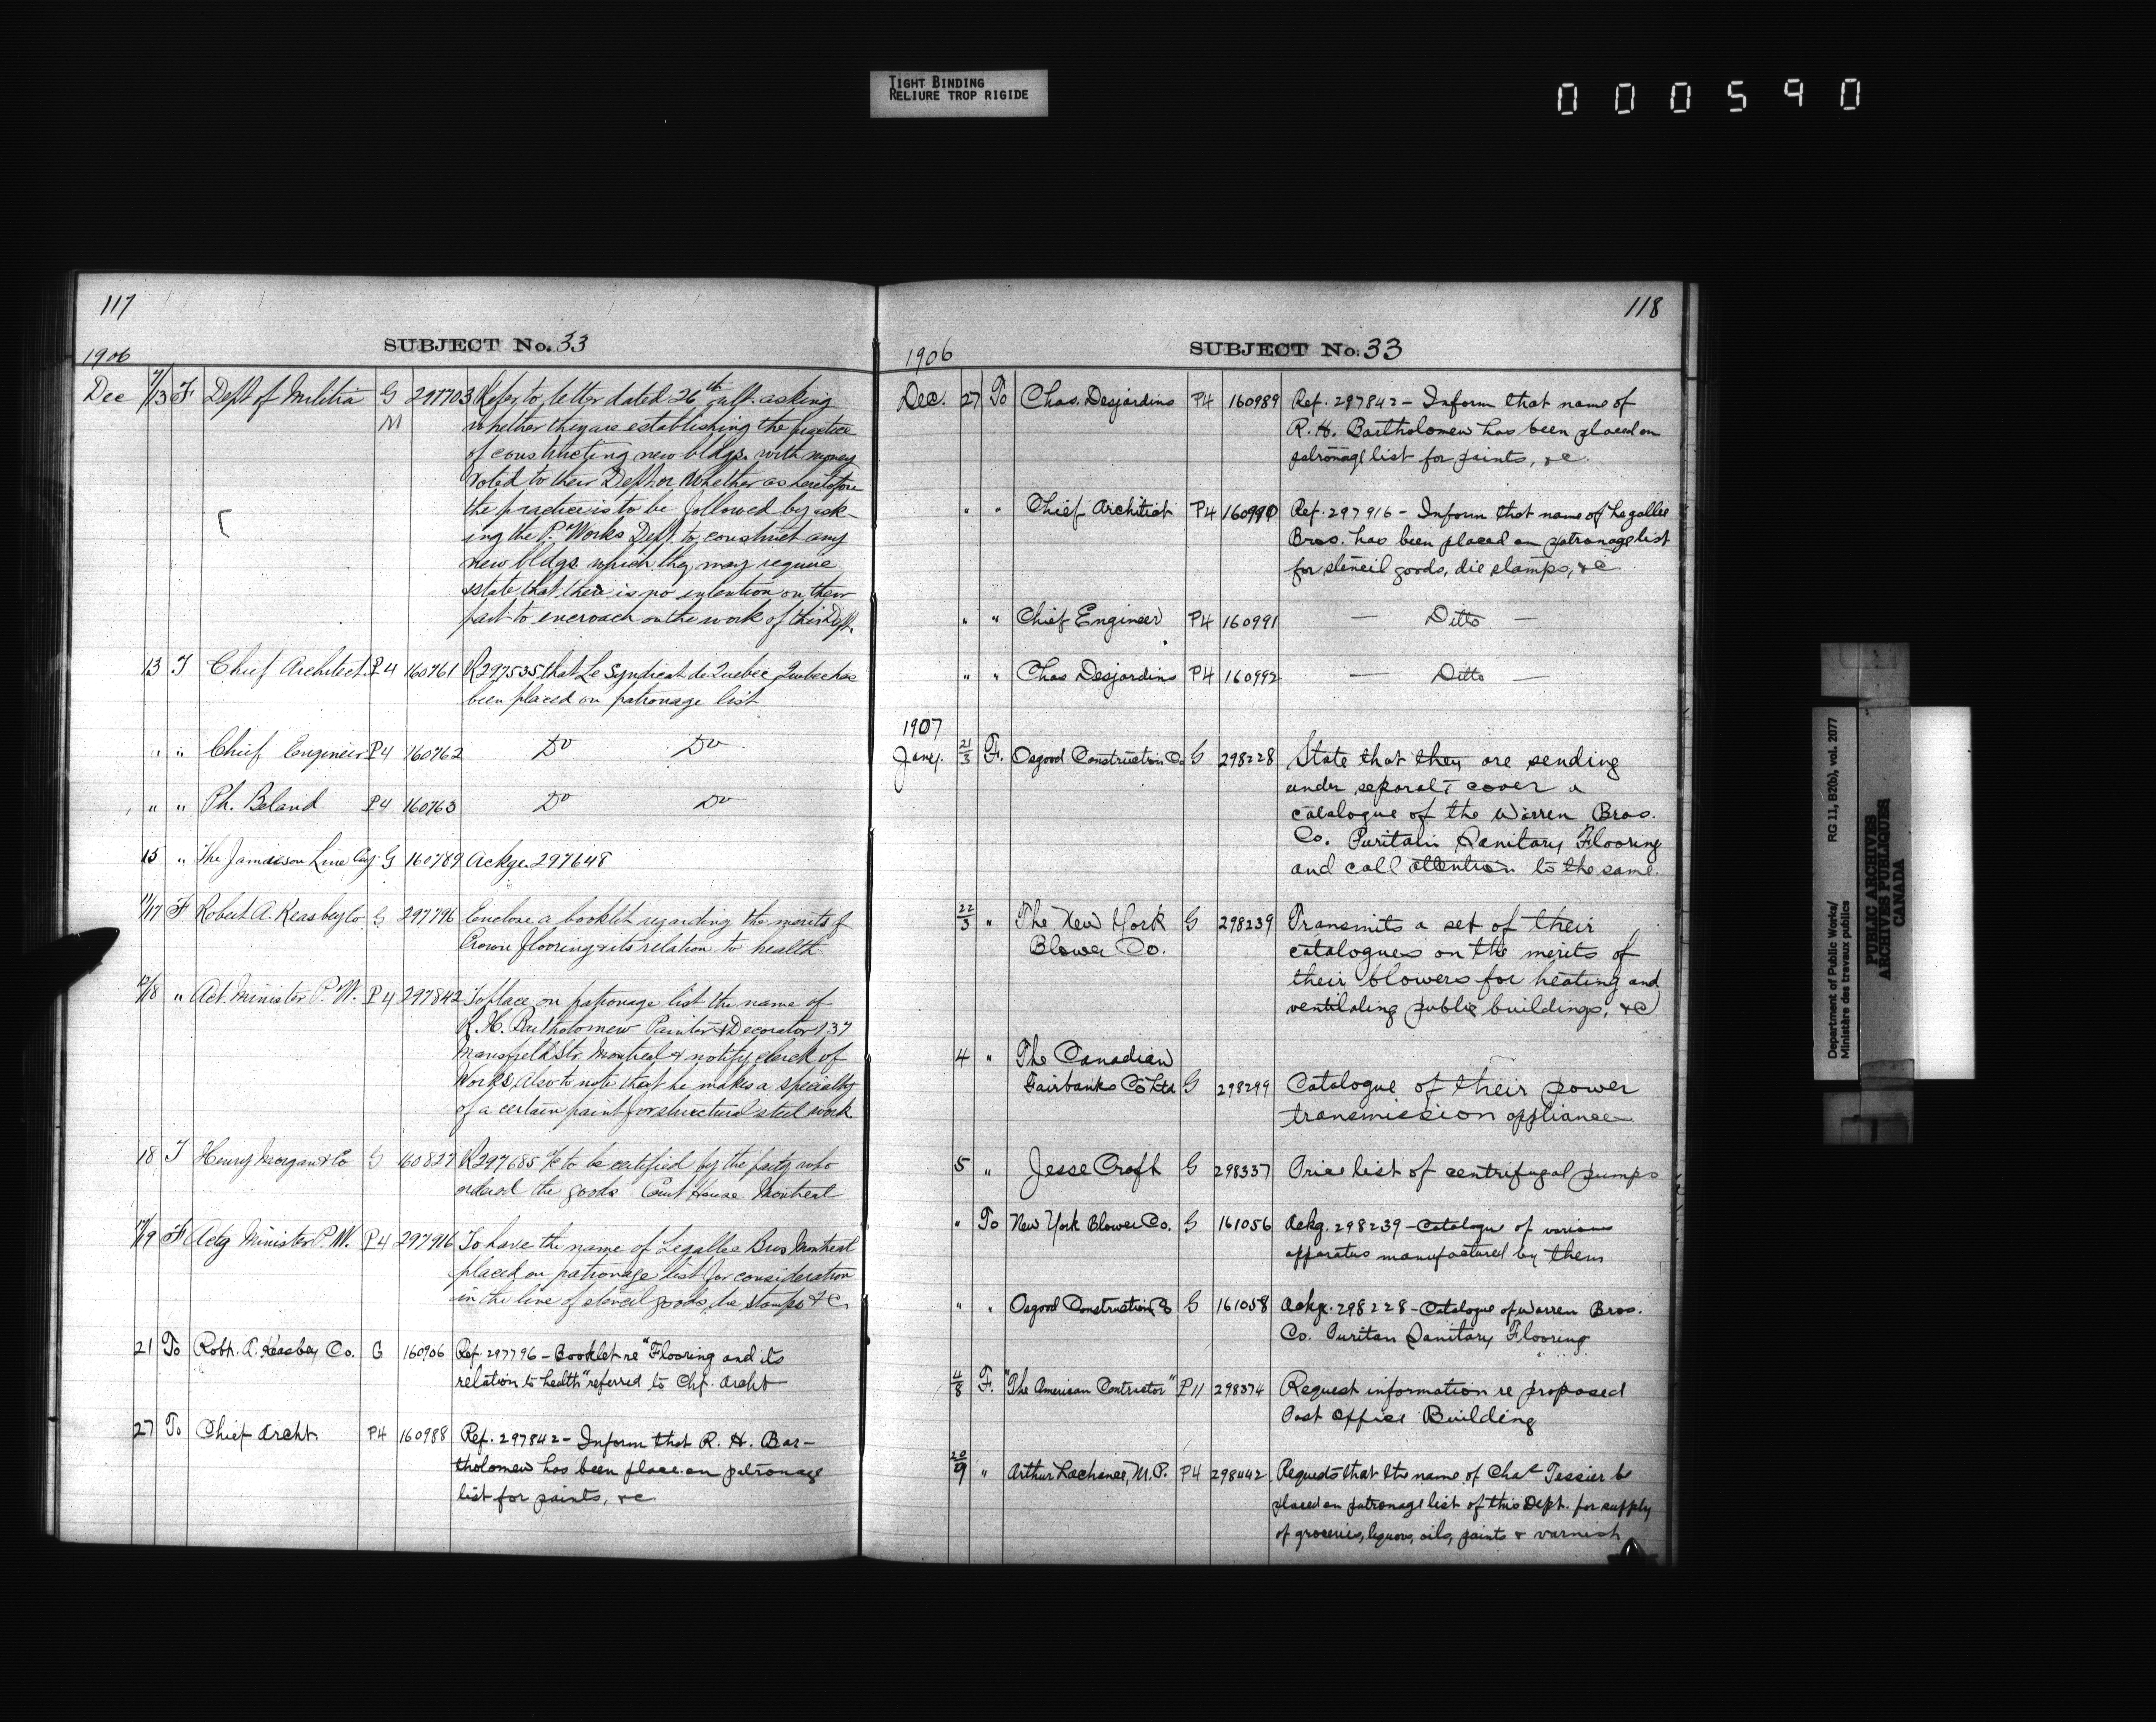 TIGHT BINDING
RELIURE TROP RIGIDE
000590
117
SUBJECT No. 33
1906
Dec 7/13 F Dept of Militia G M 297703 Refer to letter dated 26th ult. asking
whether they are establishing the practice
of constructing new bldgs. with money
voted to their Dept or whether as heretofore
the practice is to be followed by ask-
ing the P. Works Dept. to construct any
new bldgs. which they may require
state that there is no intention on their
part to encroach on the work of this Dept.
13 T Chief Architect P4 160761 R297535, that Le Syndicat de Quebec Quebec has
been placed on patronage list
" " Chief Engineer P4 160762 Do Do
" " Ph. Beland P4 160763 Do Do
15 " The Jamieson Lime Coy G 160789 Ackge. 297648
11/17 F Robert A. Keasbey Co G 297796 Enclose a booklet regarding the merits of
Crown flooring & its relation to health
12/18 " Act. Minister P.W. P4 297842 To place on patronage list the name of
R. H. Bartholomew Painter & Decorator 137
Mansfield Str. Montreal & notify clerk of
Works, Also to note that he makes a specialty
of a certain paint for structural steel work
18 T Henry Morgan & Co G 160827 R297685 a/c to be certified by the party who
ordered the goods Court House Montreal
17/19 F Actg Minister P.W. P4 297916 To have the name of Legallee Bros Montreal
placed on patronage list for consideration
in the line of stencil goods, die stamps &c
21 To Robt. A. Keasbey Co. G 160906 Ref. 297796 - Booklet re "Flooring and its
relation to health" referred to Chf. Archt
27 To Chief Archt P4 160988 Ref. 297842 - Inform that R. H. Bar-
tholomew has been place on patronage
list for paints, &c
118
SUBJECT No. 33
1906
Dec. 27 To Chas. Desjardins P4 160989 Ref. 297842 - Inform that name of
R. H. Bartholomew has been placed on
patronage list for paints, &c.
" " Chief Architect P4 160990 Ref. 297916 - Inform that name of Legallee
Bros. has been placed on patronage list
for stencil goods, die stamps, &c
" " Chief Engineer P4 160991 — Ditto —
" " Chas Desjardins P4 160992 — Ditto —
1907
Jany. 21/3 F. Osgood Construction Co G 298228 State that they are sending
under separate cover a
catalogue of the Warren Bros.
Co. Puritan Sanitary Flooring
and call attention to the same.
22/3 " The New York G 298239 Transmits a set of their
Blower Co. catalogues on the merits of
their blowers for heating and
ventilating public buildings, &c
4 " The Canadian
Fairbanks Co Ltd G 298299 Catalogue of their power
transmission appliance
5 " Jesse Croft G 298337 Price list of centrifugal pumps
" To New York Blower Co. G 161056 Ackg. 298239 - Catalogue of various
apparatus manufactured by them
" " Osgood Construction Co G 161058 Ackg. 298228 - Catalogue of Warren Bros.
Co. Puritan Sanitary Flooring
4/8 F. "The American Contractor" P11 298374 Request information re proposed
Post Office Building
20/9 " Arthur Lachance, M.P. P4 298442 Requests that the name of Chas Tessier be
placed on patronage list of this Dept. for supply
of groceries, liquors, oils, paints & varnish
Department of Public Works/ RG 11, B2(b), vol. 2077
Ministère des travaux publics
PUBLIC ARCHIVES
ARCHIVES PUBLIQUES
CANADA